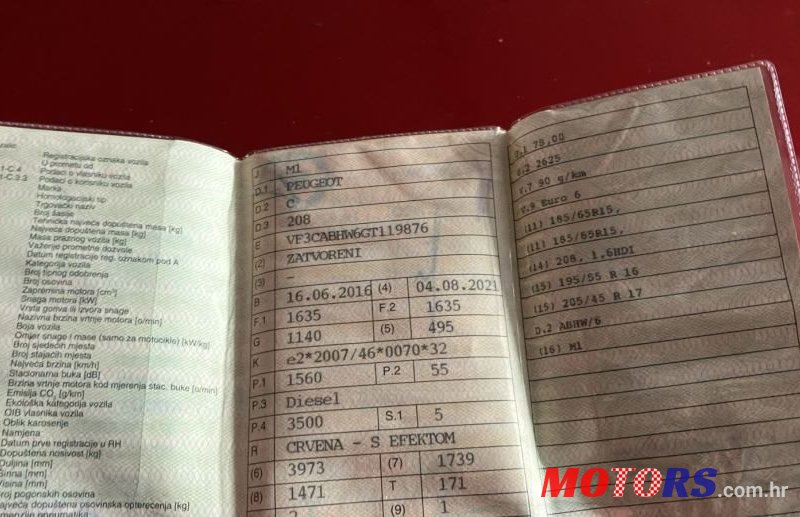 Registracijska oznaka vozila
U prometu od
Podaci o vlasniku vozila
Podaci o korisniku vozila
Marka
Homologacijski tip
Trgovački naziv
Broj šasije
Tehnička najveća dopuštena masa [kg]
Najveća dopuštena masa [kg]
Masa praznog vozila [kg]
Važenje prometne dozvole
Datum registracije reg. oznakom pod A
Kategorija vozila
Broj tipnog odobrenja
Broj osovina
Zapremina motora [cm³]
Snaga motora [kW]
Vrsta goriva ili izvora snage
Nazivna brzina vrtnje motora [o/min]
Boja vozila
Omjer snage i mase (samo za motocikle) [kW/kg]
Broj sjedećih mjesta
Broj stajaćih mjesta
Najveća brzina [km/h]
Stacionarna buka [dB]
Brzina vrtnje motora kod mjerenja stac. buke [o/min]
Emisija CO₂ [g/km]
Ekološka kategorija vozila
OIB vlasnika vozila
Oblik karoserije
Namjena
Datum prve registracije u RH
Dopuštena nosivost [kg]
Duljina [mm]
Širina [mm]
Visina [mm]
Broj pogonskih osovina
J M1
D.1 PEUGEOT
D.2 C
D.3 208
E VF3CABHW6GT119876
(2) ZATVORENI
(3) -
B 16.06.2016 (4) 04.08.2021
F.1 1635 F.2 1635
G 1140 (5) 495
K e2*2007/46*0070*32
P.1 1560 P.2 55
P.3 Diesel
P.4 3500 S.1 5
R CRVENA - S EFEKTOM
(6) 3973 (7) 1739
(8) 1471 T 171
2 (9) 1
U.1 75,00
U.2 2625
V.7 90 g/km
V.9 Euro 6
(11) 185/65R15,
(11) 185/65R15,
(14) 208, 1,6HDI
(15) 195/55 R 16
(15) 205/45 R 17
D.2 ABHW/6
(16) M1
MOTORS.com.hr